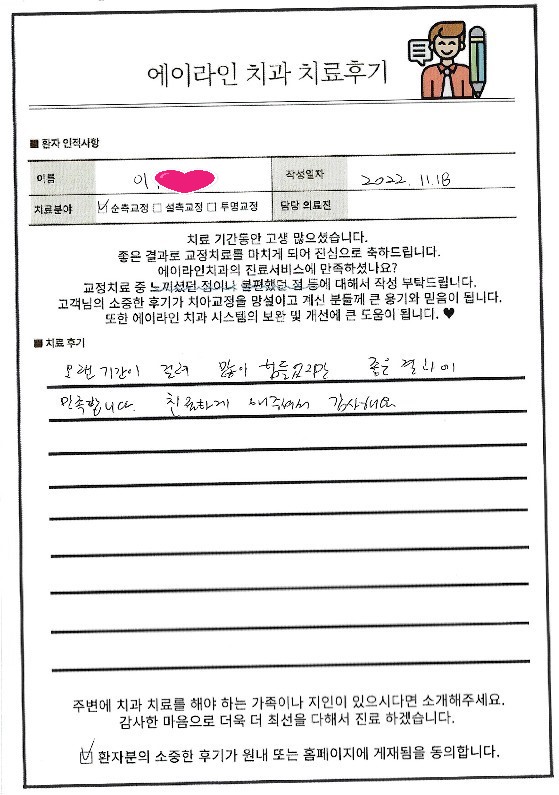 에이라인 치과 치료후기
■ 환자 인적사항
이름 이 작성일자 2022. 11.18
치료분야 ☑ 순측교정 □ 설측교정 □ 투명교정 담당 의료진
치료 기간동안 고생 많으셨습니다.
좋은 결과로 교정치료를 마치게 되어 진심으로 축하드립니다.
에이라인치과의 진료서비스에 만족하셨나요?
교정치료 중 느끼셨던 점이나 불편했던 점 등에 대해서 작성 부탁드립니다.
고객님의 소중한 후기가 치아교정을 망설이고 계신 분들께 큰 용기와 믿음이 됩니다.
또한 에이라인 치과 시스템의 보완 및 개선에 큰 도움이 됩니다. ♥
■ 치료 후기
오랜 기간이 걸려 많이 힘들었지만 좋은 결과에
만족합니다. 친절하게 해주셔서 감사해요
주변에 치과 치료를 해야 하는 가족이나 지인이 있으시다면 소개해주세요.
감사한 마음으로 더욱 더 최선을 다해서 진료 하겠습니다.
☑ 환자분의 소중한 후기가 원내 또는 홈페이지에 게재됨을 동의합니다.